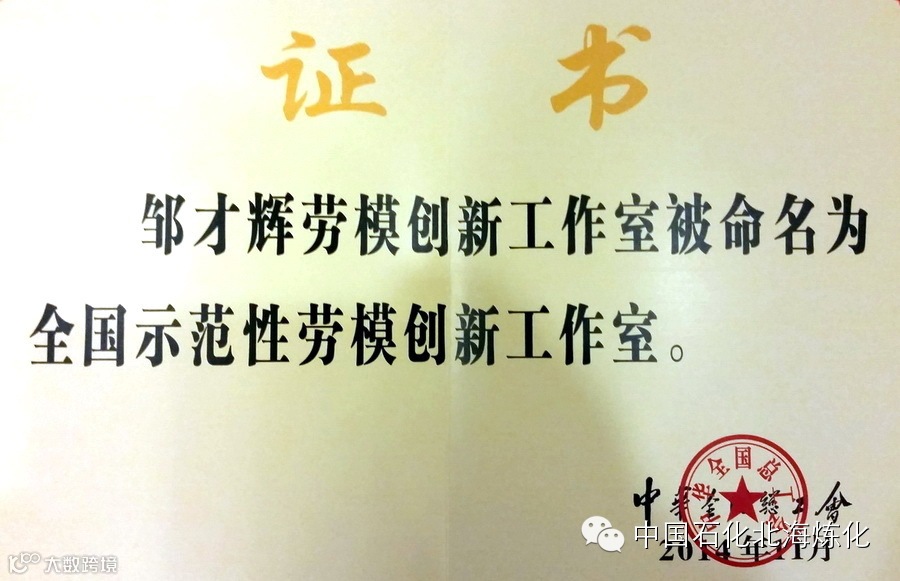 证书
邹才辉劳模创新工作室被命名为
全国示范性劳模创新工作室。
中华全国总工会
中华全国总工会
2014年11月
中国石化北海炼化
大数跨境